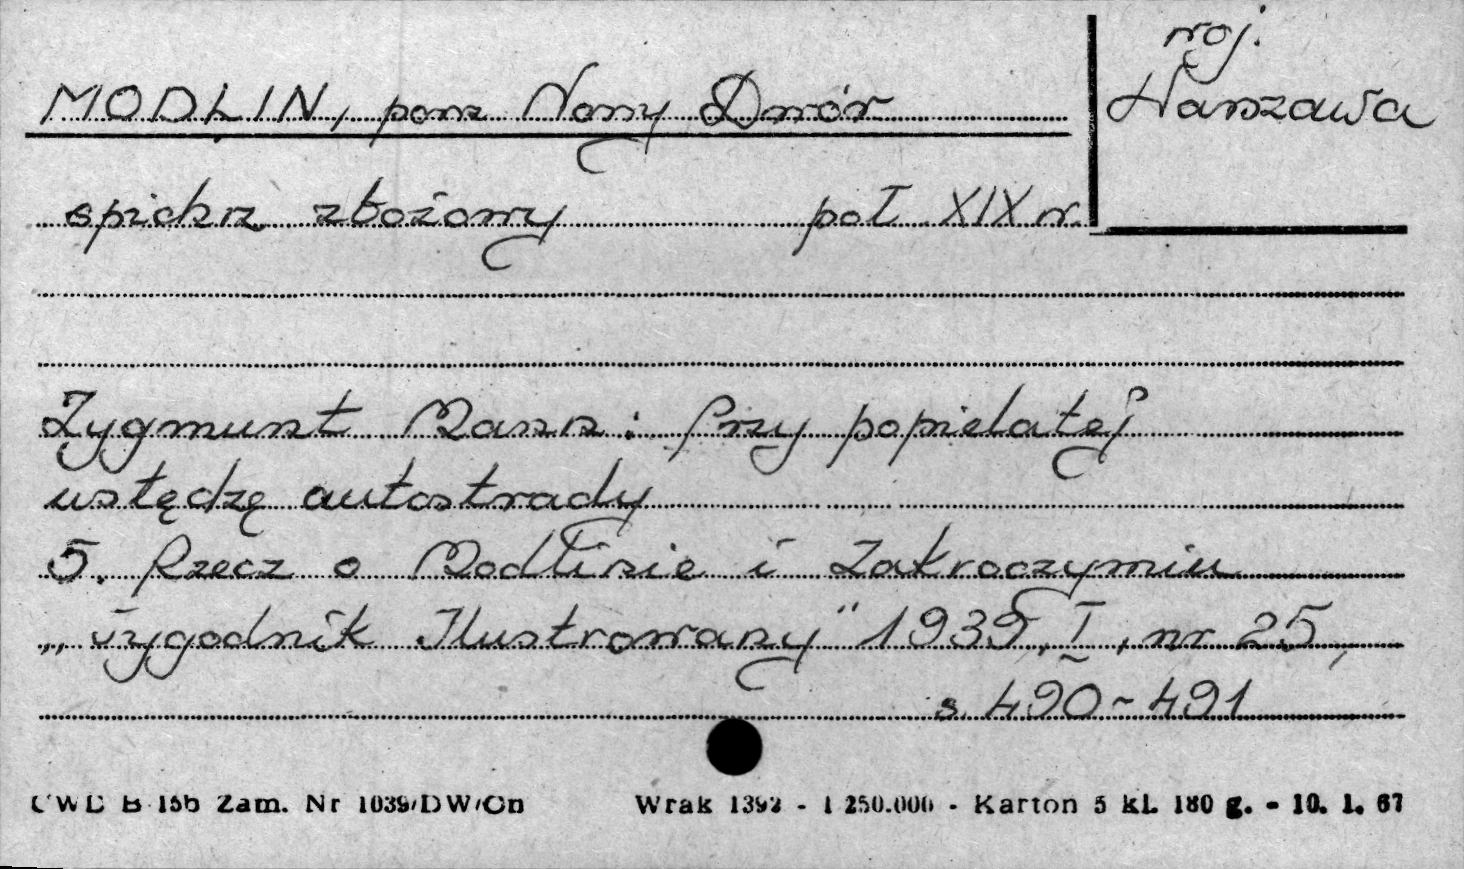 woj.
Warszawa
MODLIN, pow Nowy Dwór
spichrz zbożowy poł XIX w.
Zygmunt Mann: Przy popielatej
wstędze autostrady
5. Rzecz o Modlinie i Zakroczymiu
„Tygodnik Ilustrowany" 1939, I, nr 25,
s. 490-491
CWD B 156 Zam. Nr 1039/DW/On Wrak 1392 - 1 250.000 - Karton 5 kl. 180 g. - 10. 1. 67